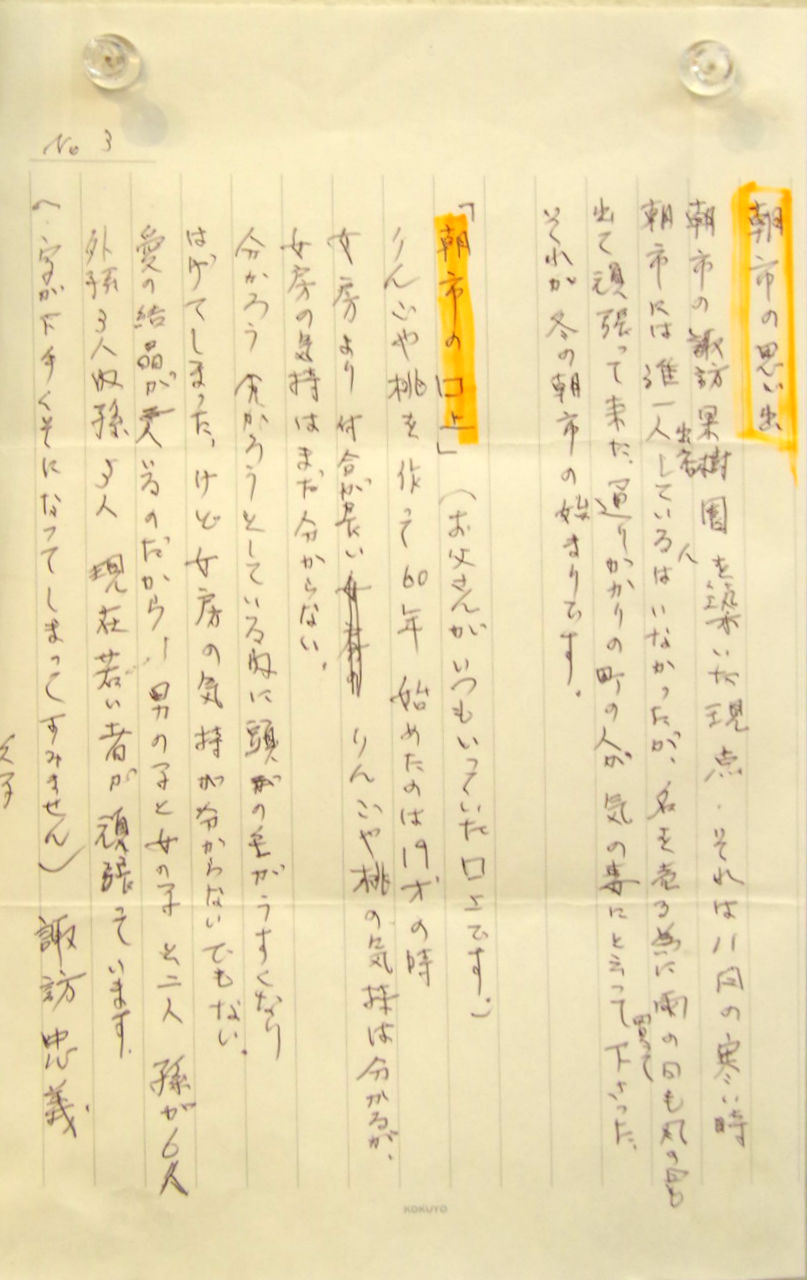 No 3
朝市の思い出
朝市の諏訪果樹園を築いた現点.それは八月の寒い時
朝市には進一人出店しているんはいなかったが、名を売る為に雨の日も風の日も
出て頑張って来た、通りかかりの町の人が気の毒にと云って買って下さった、
それが冬の朝市の始まりです.
「朝市の口上」(お父さんがいつもいっていた口上です。)
りんごや桃を作って60年 始めたのは19才の時
女房より付合が長い りんごや桃の気持は分かるが、
女房の気持はまだ分からない.
分かろう分かろうとしている内に頭の毛がうすくなり
はげてしまった、けど女房の気持が分からないでもない.
愛の結晶が実いるのだから— 男の子と女の子と二人 孫が6人
外孫3人内孫3人 現在若い者が頑張っています.
(字が下手くそになってしまってすみません) 諏訪忠義
久子
KOKUYO